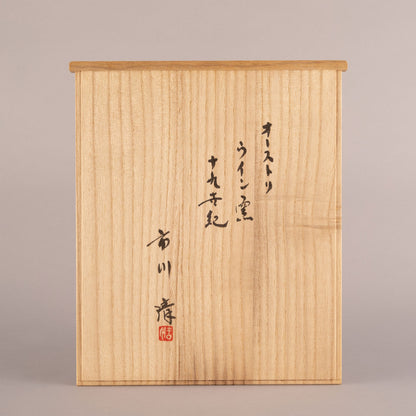 オーストリ
ウイン窯
十九世紀
市川 清